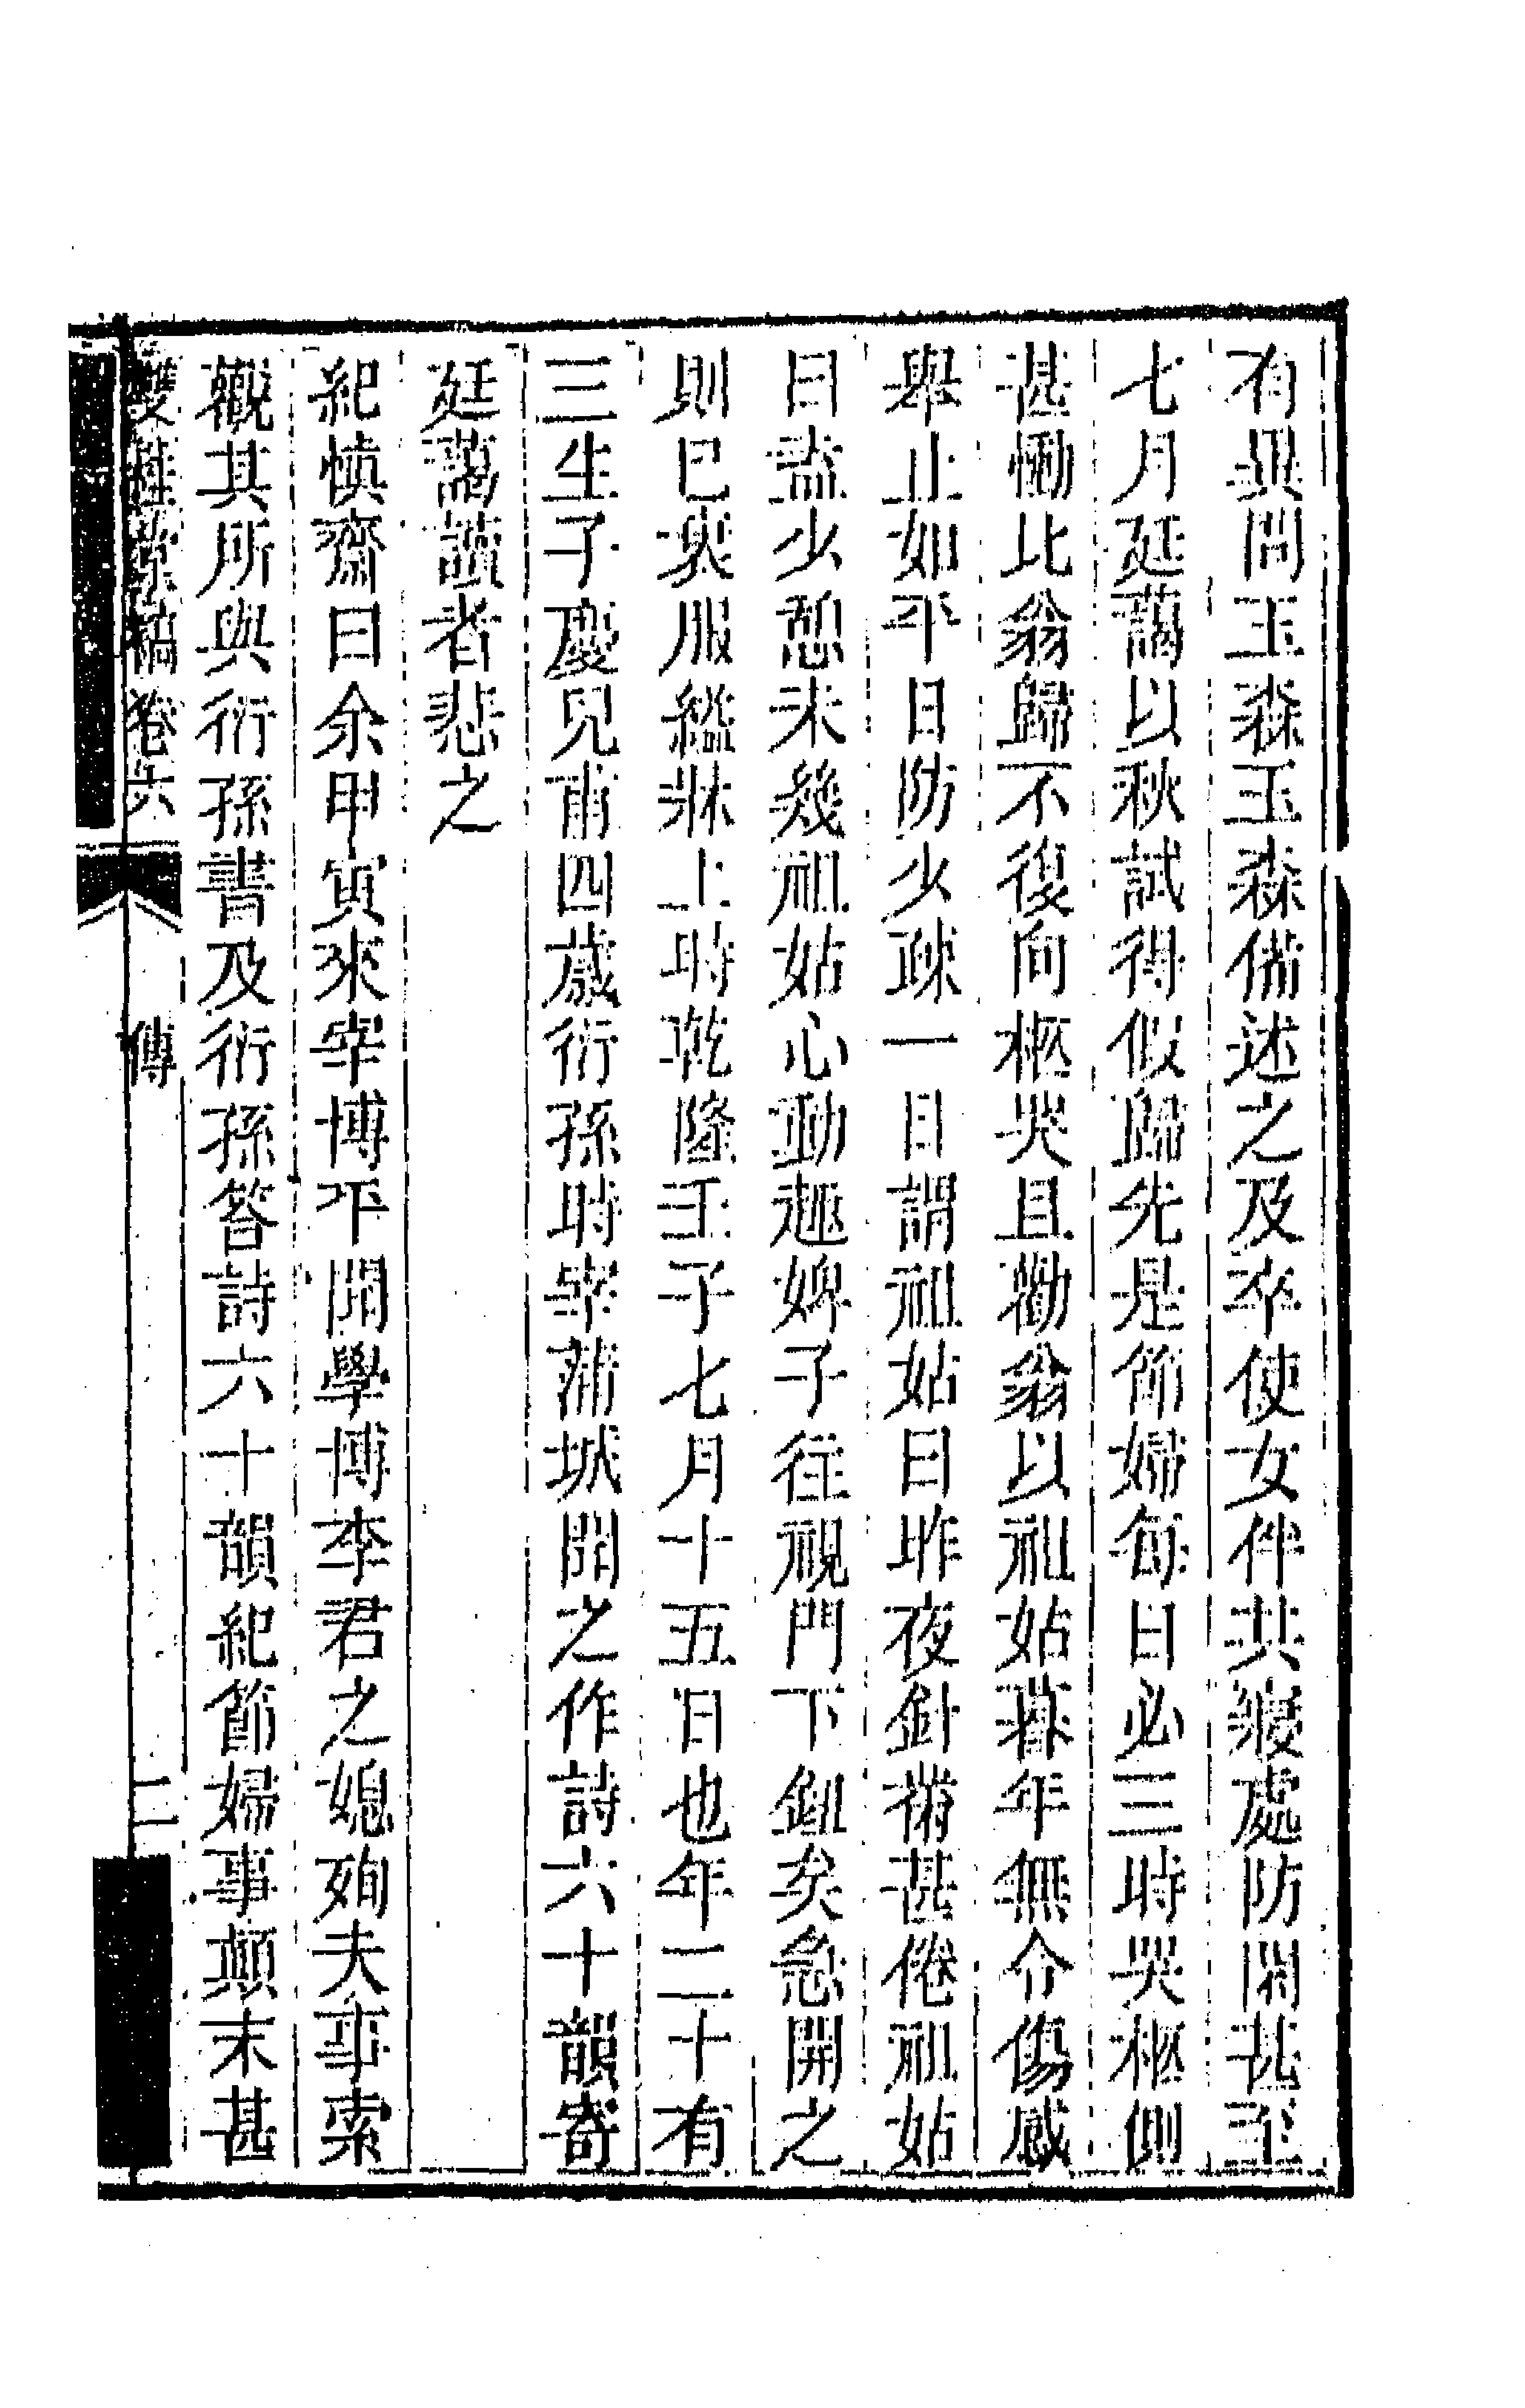 有異問玉森玉森備述之及卒使女伴共寢處防閑甚至
七月廷藹以秋試得假歸先是節婦每日必三時哭柩側
甚慟比翁歸不復向柩哭且勸翁以祖姑暮年無令傷感
舉止如平日防少疎一日謂祖姑曰昨夜針黹甚倦祖姑
曰盍少憩未幾祖姑心動趣婢子往視門下鈕矣急開之
則已衰服縊牀上時乾隆壬子七月十五日也年二十有
三生子慶兒甫四歲衍孫時宰蒲城聞之作詩六十韻寄
廷藹讀者悲之
紀慎齋曰余甲寅來宰博平聞學博李君之媳殉夫事索
觀其所與衍孫書及衍孫答詩六十韻紀節婦事顛末甚
雙桂堂稿卷六 傳 二